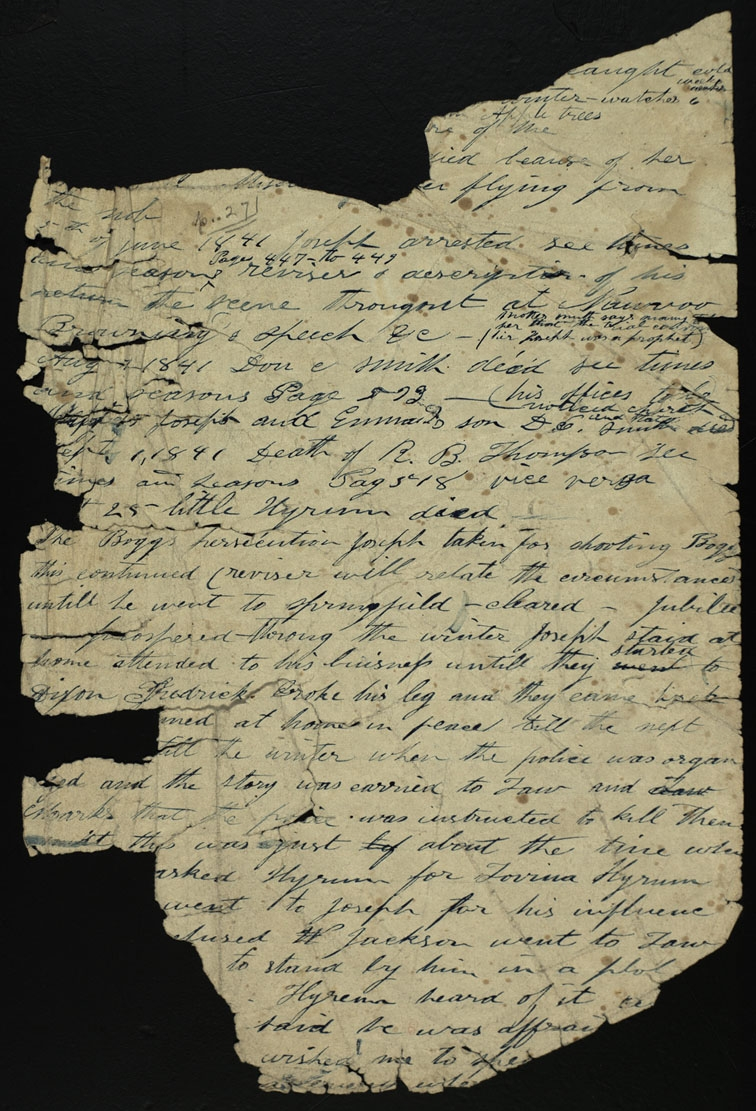 caught cold
weeks
winter - watched a
Apple trees
of me
died because of her
flying from
the mob p. 271
5th of June 1841 Joseph arrested see times
and seasons Page 447 to 449 reviser & description of his
return the scene througout at Nauvoo
Browning's speech &c - (his Joseph was a prophet)
Aug 1841 Don c smith died see times
and seasons Page - (his offices to be
noticed
Joseph and Emma's son D.C. Smith died
Sept. 1, 1841 Death of R. B. Thompson see
times and seasons Pag 518 vice versa
25 little Hyrum died
The Boggs persecution Joseph taken for shooting Boggs
this continued (reviser will relate the circumstances
untill he went to springfield - cleared - jubilee
- prospered throug the winter Joseph staid at
home attended to his buisness untill they went started to
Dixon Fredrick broke his leg and they came back
at home in peace till the next
till the winter when the police was organ
ised and the story was carried to Law and Law
Marks that the police was instructed to kill them
this was just about the time when
asked Hyrum for Lovina Hyrum
went to Joseph for his influence
Jackson went to Law
to stand by him in a plot
Hyrum heard of it
said he was affrai
wished me to